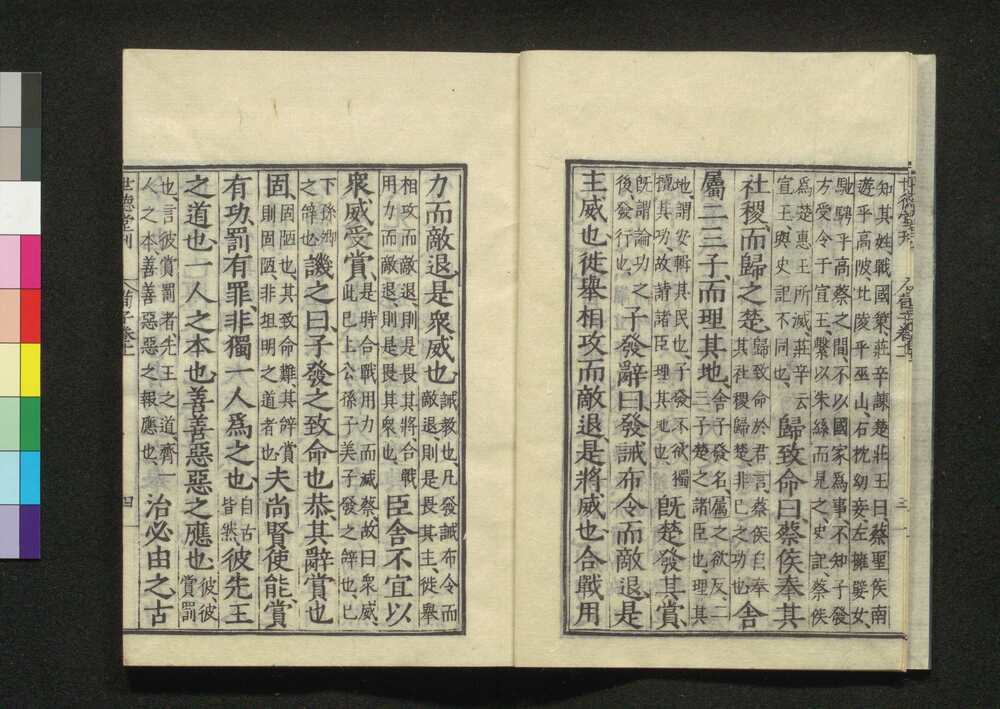 知其姓戰國策、莊辛諫楚莊王曰蔡聖侯南
遊乎高陂北陵乎巫山、右枕幼妾左擁嬖女、
馳騁乎高蔡之間、不以國家爲事不知子發
方受令于宣王、繫以朱絲而見之史記蔡侯
爲楚惠王所滅、莊辛云
宣王、與史記不同也、
歸致命曰、蔡侯奉其
社稷、而歸之楚、
歸致命於君言蔡侯自奉
其社稷歸楚、非己之功也
舍
屬二三子而理其地、
舍子發名屬之欲反二
三子楚之諸臣也、理其
地、謂安輯其民也、子發不欲獨
擅其功、故請諸臣理其地也、
旣楚發其賞、
旣謂論功之
後發行也、
子發辭曰、發誡布令而敵退、是
主威也、徙舉相攻而敵退、是將威也、合戰用
力而敵退、是衆威也、
誡教也、凡發誡布令而
敵退、則是畏其主、徙舉
相攻而敵退、則是畏其將合戰
用力而敵退、則是畏其衆也、
臣舍不宜以
衆威受賞、
是時合戰用力而滅蔡故曰衆威、
此已上公孫子美子發之辭也、已
下孫卿
之辭也、
譏之曰、子發之致命也恭其辭賞也
固、
固陋也、其致命難、其辭賞
則固陋、非坦明之道者也、
夫尚賢使能賞
有功、罰有罪、非獨一人爲之也、
自古
皆然
彼先王
之道也、一人之本也、善善惡惡之應也、
彼、彼
賞罰
也、言彼賞罰者、先王之道齊一
人之本善善惡惡之報應也、
治必由之古
世德堂刊
荀子卷十一
四